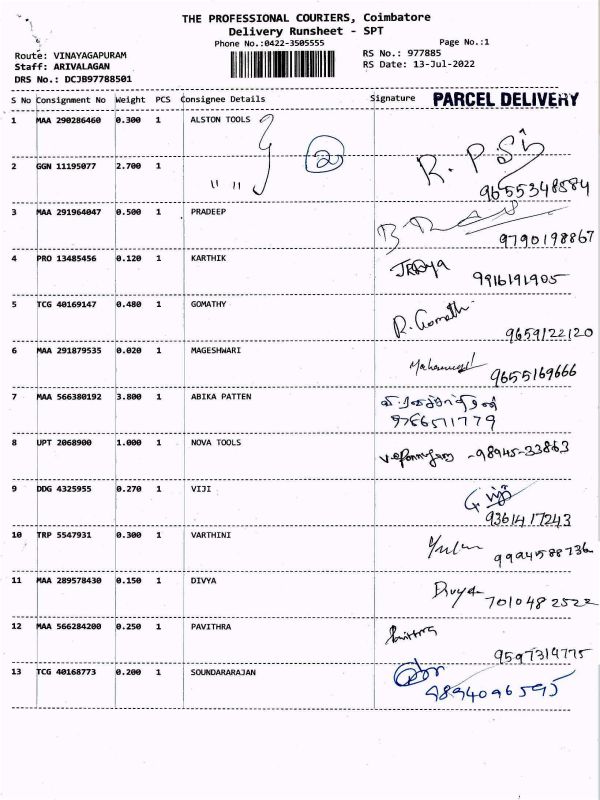 THE PROFESSIONAL COURIERS, Coimbatore
Delivery Runsheet - SPT
Phone No.:0422-3505555
Page No.:1
Route: VINAYAGAPURAM
RS No.: 977885
Staff: ARIVALAGAN
RS Date: 13-Jul-2022
DRS No.: DCJB97788501
S No Consignment No Weight PCS Consignee Details Signature PARCEL DELIVERY
1 MAA 290286460 0.300 1 ALSTON TOOLS
2 GGN 11195077 2.700 1 " "
9655348584
3 MAA 291964047 0.500 1 PRADEEP
9790198867
4 PRO 13485456 0.120 1 KARTHIK
9916191905
5 TCG 40169147 0.480 1 GOMATHY R. Gomath
9659122120
6 MAA 291879535 0.020 1 MAGESHWARI
9655169666
7 MAA 566380192 3.800 1 ABIKA PATTEN
9786511779
8 UPT 2068900 1.000 1 NOVA TOOLS -98945-33863
9 DDG 4325955 0.270 1 VIJI
9361417243
10 TRP 5547931 0.300 1 VARTHINI
9994588736
11 MAA 289578430 0.150 1 DIVYA Divya
7010482522
12 MAA 566284200 0.250 1 PAVITHRA
9597314775
13 TCG 40168773 0.200 1 SOUNDARARAJAN
9894096595